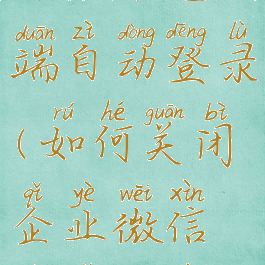 duān zì dòng dēng lù
端自动登录
rú hé guān bì
(如何关闭
qǐ yè wēi xìn
企业微信